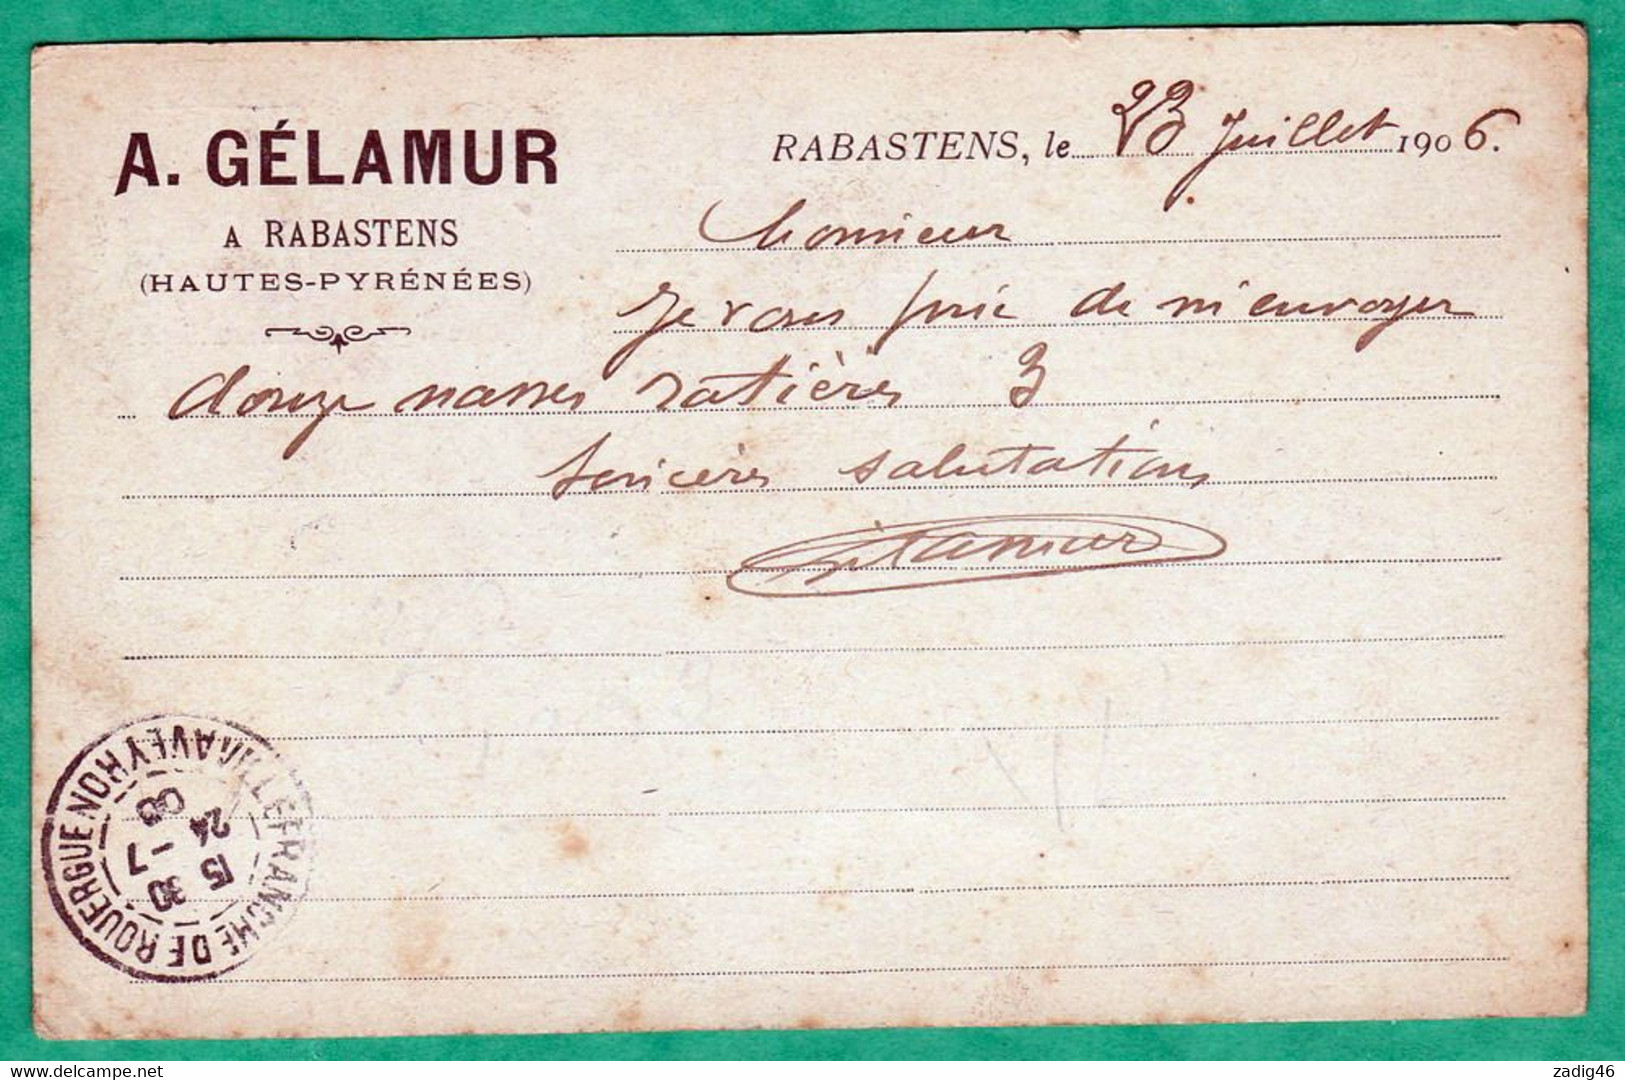 A. GÉLAMUR
A RABASTENS
(HAUTES-PYRÉNÉES)
RABASTENS, le 23 Juillet 1906.
Monsieur
Je vous prie de m'envoyer
douze nasses ratières 3
Sincères salutations
Gélamur
VILLEFRANCHE DE ROUERGUE AVEYRON
15 30
24 -7
06
zadig46